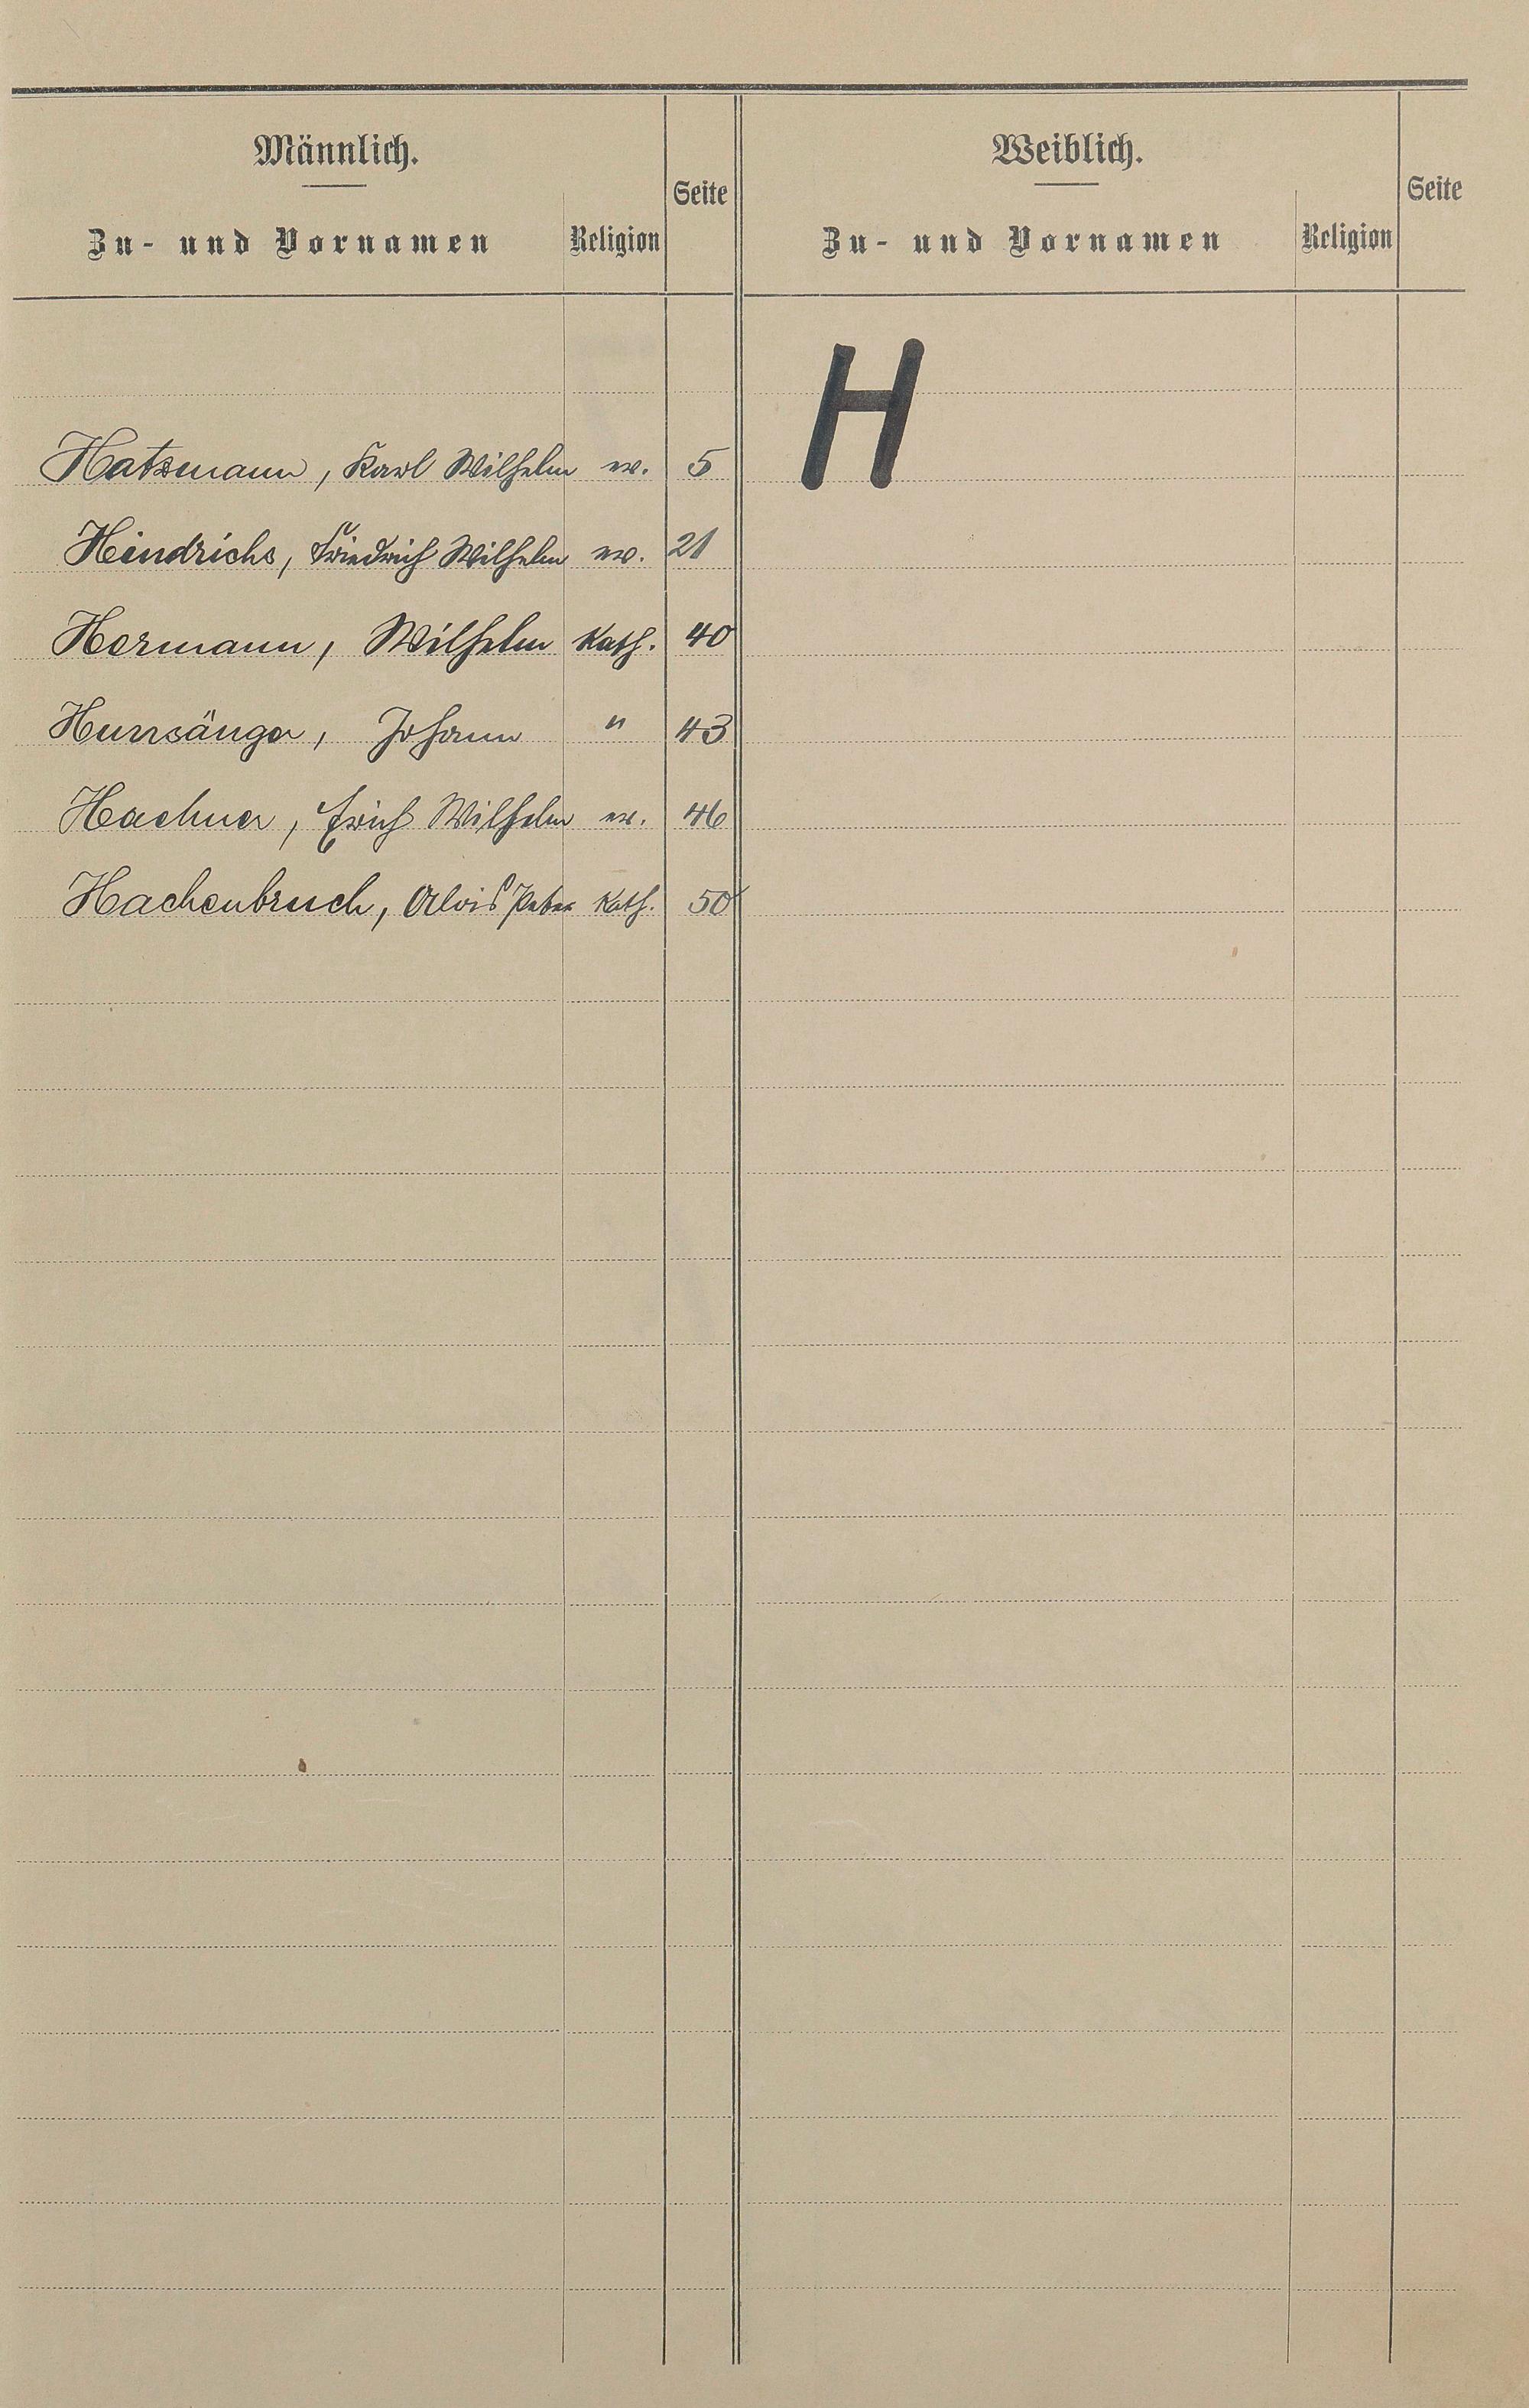 Männlich.
Zu- und Vornamen Religion Seite
Weiblich.
Zu- und Vornamen Religion Seite
H
Hatzmann, Karl Wilhelm ev. 5
Hindrichs, Friedrich Wilhelm ev. 21
Hermann, Wilhelm kath. 40
Johann " 43
Erich Wilhelm ev. 46
Hachenbruch, Alois Peter kath. 50